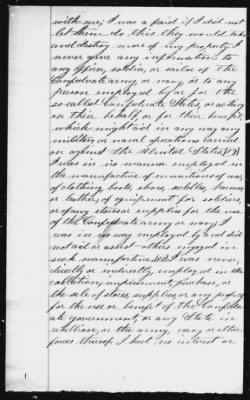 with me; I was afraid if I did not
let them do this they would take
and destroy more of my property. I
never gave any information to
any officer, soldier, or sailor of the
Confederate army or navy, or to any
person employed by or for the
so-called Confederate States, or acting
on their behalf, or for their benefit
which might aid in any way any
military or naval operations carried
on against the United States.
I was in no manner employed in
the manufacture of munitions of war,
of clothing, boots, shoes, saddles, harness
or leather, of equipment for soldiers
or of any stores or supplies for the use
of the Confederate army or navy. I
was in no way employed by and did
not aid or assist others engaged in
such manufacture. I was never,
directly or indirectly, employed in the
collection, impressment, purchase, or
the sale of stores, supplies, or any property
for the use or benefit of the Confeder-
ate government, or any State in
rebellion, or the army, navy or other
forces thereof. I had no interest or